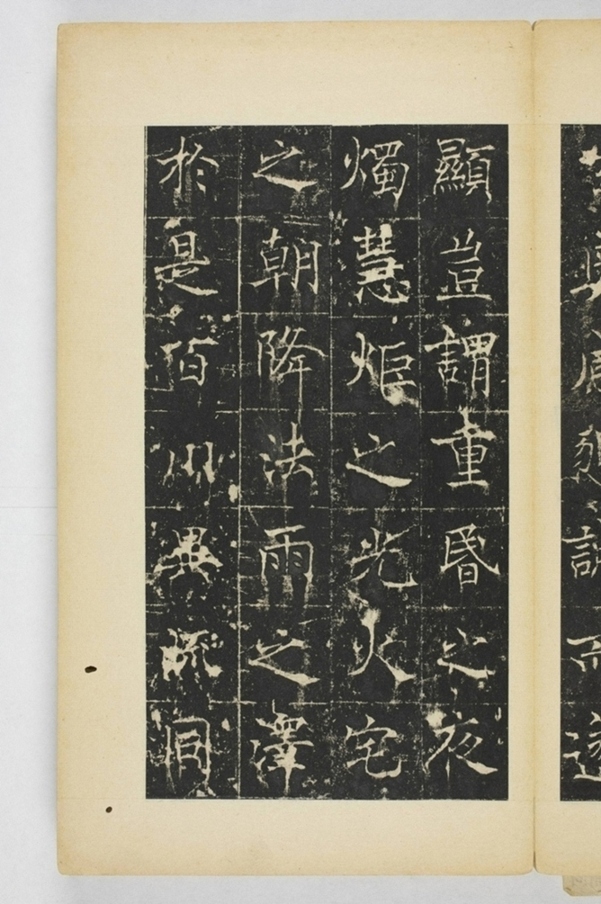 誠而遂
顯豈謂重昏之夜
燭慧炬之光火宅
之朝降法雨之澤
於是百川異流同